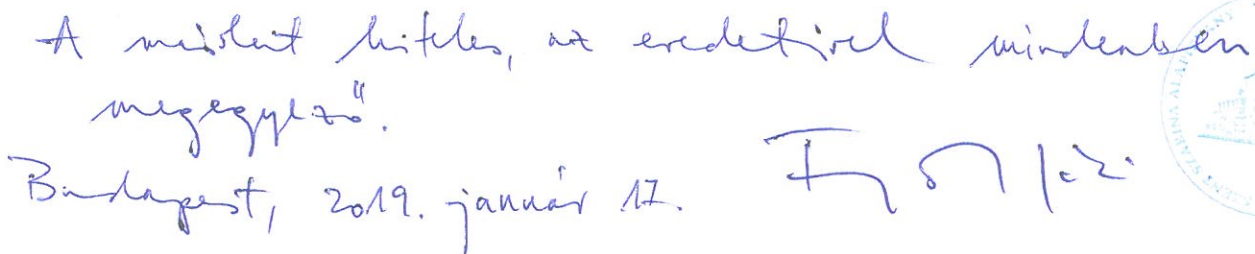 A másolat hiteles, az eredetivel mindenben
megegyező.
Budapest, 2019. január 17.